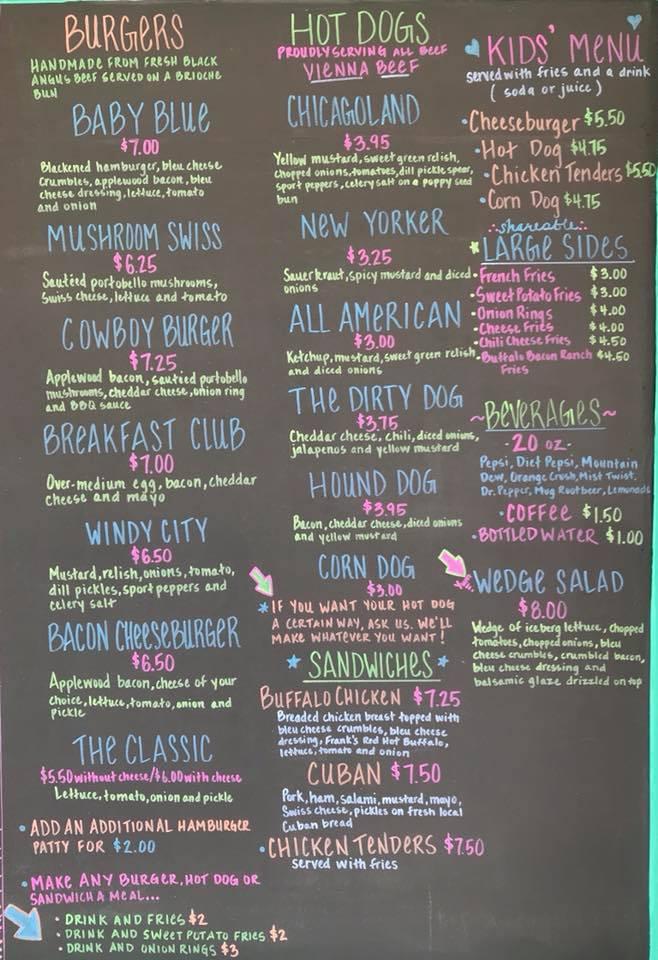 BURGERS
HANDMADE FROM FRESH BLACK
ANGUS BEEF SERVED ON A BRIOCHE
BUN
BABY BLUE
$7.00
Blackened hamburger, bleu cheese
crumbles, applewood bacon, bleu
cheese dressing, lettuce, tomato
and onion
MUSHROOM SWISS
$6.25
Sautéed portobello mushrooms,
Swiss cheese, lettuce and tomato
COWBOY BURGER
$7.25
Applewood bacon, sautéed portobello
mushrooms, cheddar cheese, onion ring
and BBQ sauce
BREAKFAST CLUB
$7.00
Over-medium egg, bacon, cheddar
cheese and mayo
WINDY CITY
$6.50
Mustard, relish, onions, tomato,
dill pickles, sport peppers and
celery salt
BACON CHEESEBURGER
$6.50
Applewood bacon, cheese of your
choice, lettuce, tomato, onion and
pickle
THE CLASSIC
$5.50 without cheese/$6.00 with cheese
Lettuce, tomato, onion and pickle
• ADD AN ADDITIONAL HAMBURGER
PATTY FOR $2.00
• MAKE ANY BURGER, HOT DOG OR
SANDWICH A MEAL...
• DRINK AND FRIES $2
• DRINK AND SWEET POTATO FRIES $2
• DRINK AND ONION RINGS $3
HOT DOGS
PROUDLY SERVING ALL BEEF
VIENNA BEEF
CHICAGOLAND
$3.95
Yellow mustard, sweet green relish,
chopped onions, tomatoes, dill pickle spear,
sport peppers, celery salt on a poppy seed
bun
NEW YORKER
$3.25
Sauerkraut, spicy mustard and diced
onions
ALL AMERICAN
$3.00
Ketchup, mustard, sweet green relish
and diced onions
THE DIRTY DOG
$3.75
Cheddar cheese, chili, diced onions,
jalapenos and yellow mustard
HOUND DOG
$3.95
Bacon, cheddar cheese, diced onions
and yellow mustard
CORN DOG
$3.00
* IF YOU WANT YOUR HOT DOG
A CERTAIN WAY, ASK US. WE'LL
MAKE WHATEVER YOU WANT!
SANDWICHES
BUFFALO CHICKEN $7.25
Breaded chicken breast topped with
bleu cheese crumbles, bleu cheese
dressing, Frank's Red Hot Buffalo,
lettuce, tomato and onion
CUBAN $7.50
Pork, ham, salami, mustard, mayo,
Swiss cheese, pickles on fresh local
Cuban bread
• CHICKEN TENDERS $7.50
served with fries
KIDS' MENU
served with fries and a drink
(soda or juice)
• Cheeseburger $5.50
• Hot Dog $4.75
• Chicken Tenders $5.50
• Corn Dog $4.75
shareable
LARGE SIDES
• French Fries $3.00
• Sweet Potato Fries $3.00
• Onion Rings $4.00
• Cheese Fries $4.00
• Chili Cheese Fries $4.50
• Buffalo Bacon Ranch $4.50
Fries
~BEVERAGES~
- 20 oz. -
Pepsi, Diet Pepsi, Mountain
Dew, Orange Crush, Mist Twist,
Dr. Pepper, Mug Rootbeer, Lemonade
• COFFEE $1.50
• BOTTLED WATER $1.00
WEDGE SALAD
$8.00
Wedge of iceberg lettuce, chopped
tomatoes, chopped onions, bleu
cheese crumbles, crumbled bacon,
bleu cheese dressing and
balsamic glaze drizzled on top